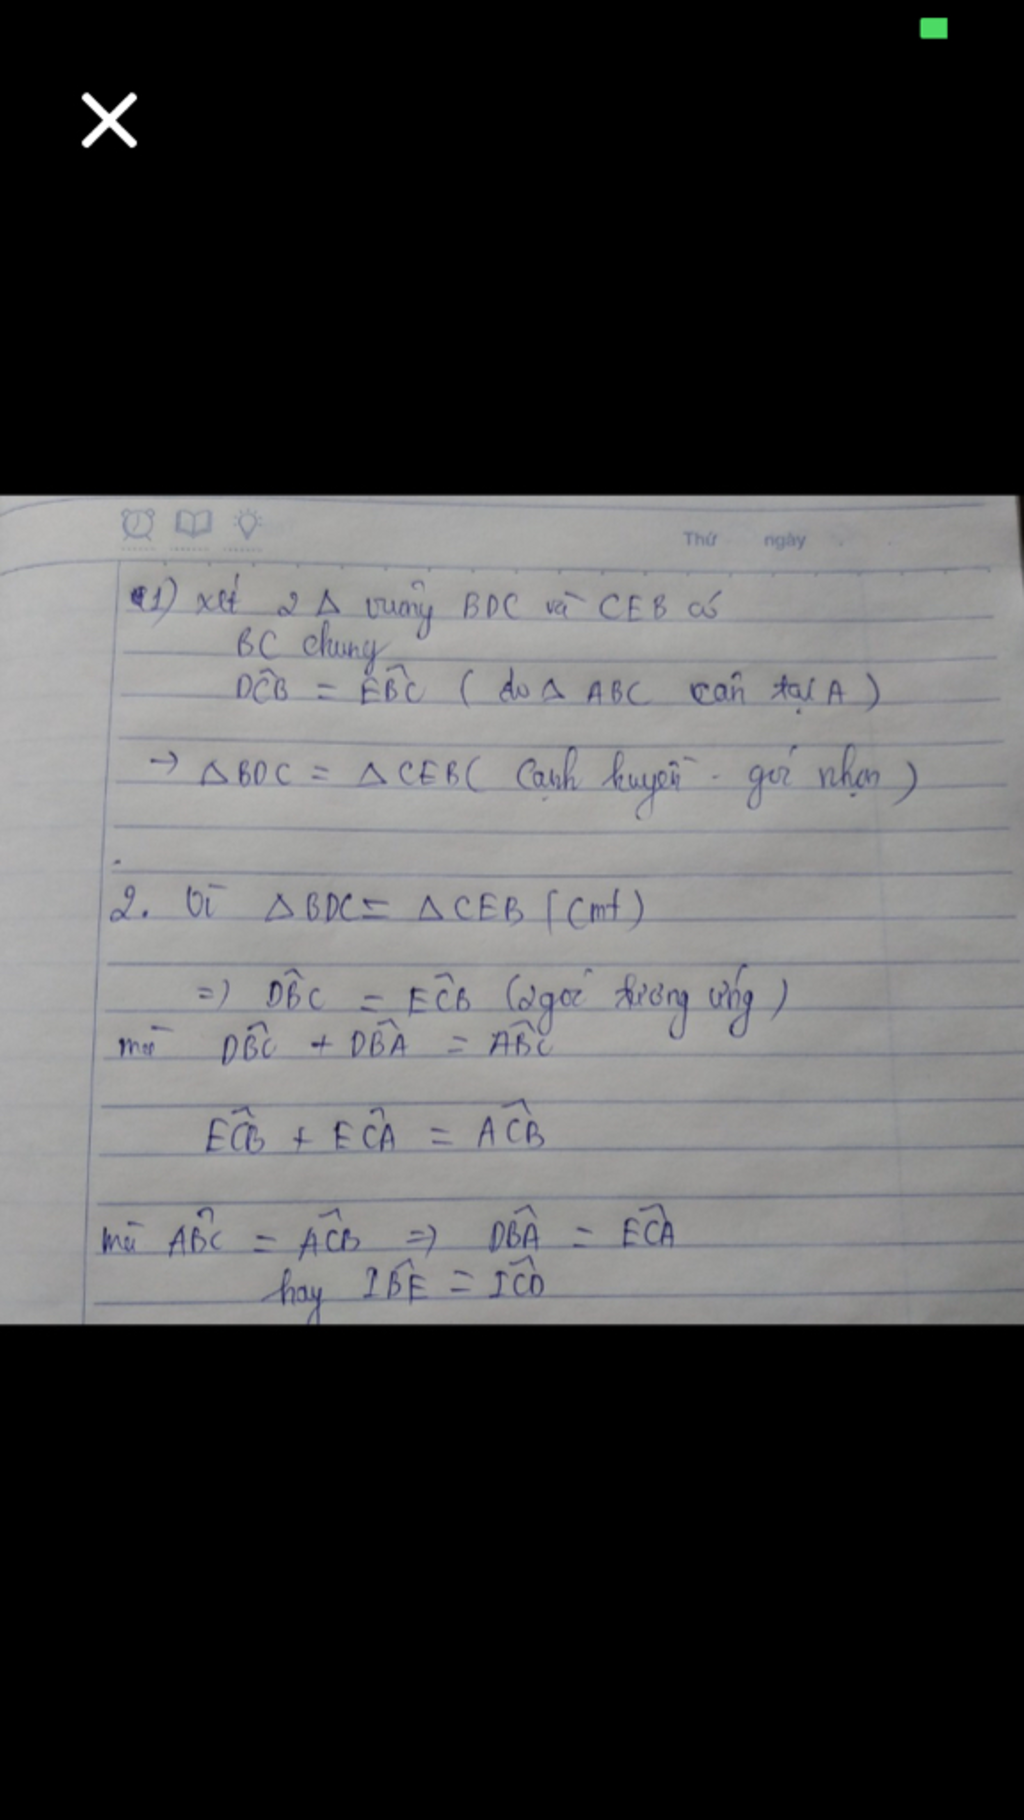 Thứ ngày
1) xét 2 Δ vuông BDC và CEB có
BC chung
DĈB = EB̂C ( do Δ ABC cân tại A )
→ ΔBDC = ΔCEB ( Cạnh huyền - góc nhọn )
2. Vì ΔBDC = ΔCEB (Cmt)
=) DB̂C = EĈB (2 góc tương ứng )
mà DB̂C + DB̂A = AB̂C
EĈB + EĈA = AĈB
mà AB̂C = AĈB =) DB̂A = EĈA
hay IB̂E = IĈD